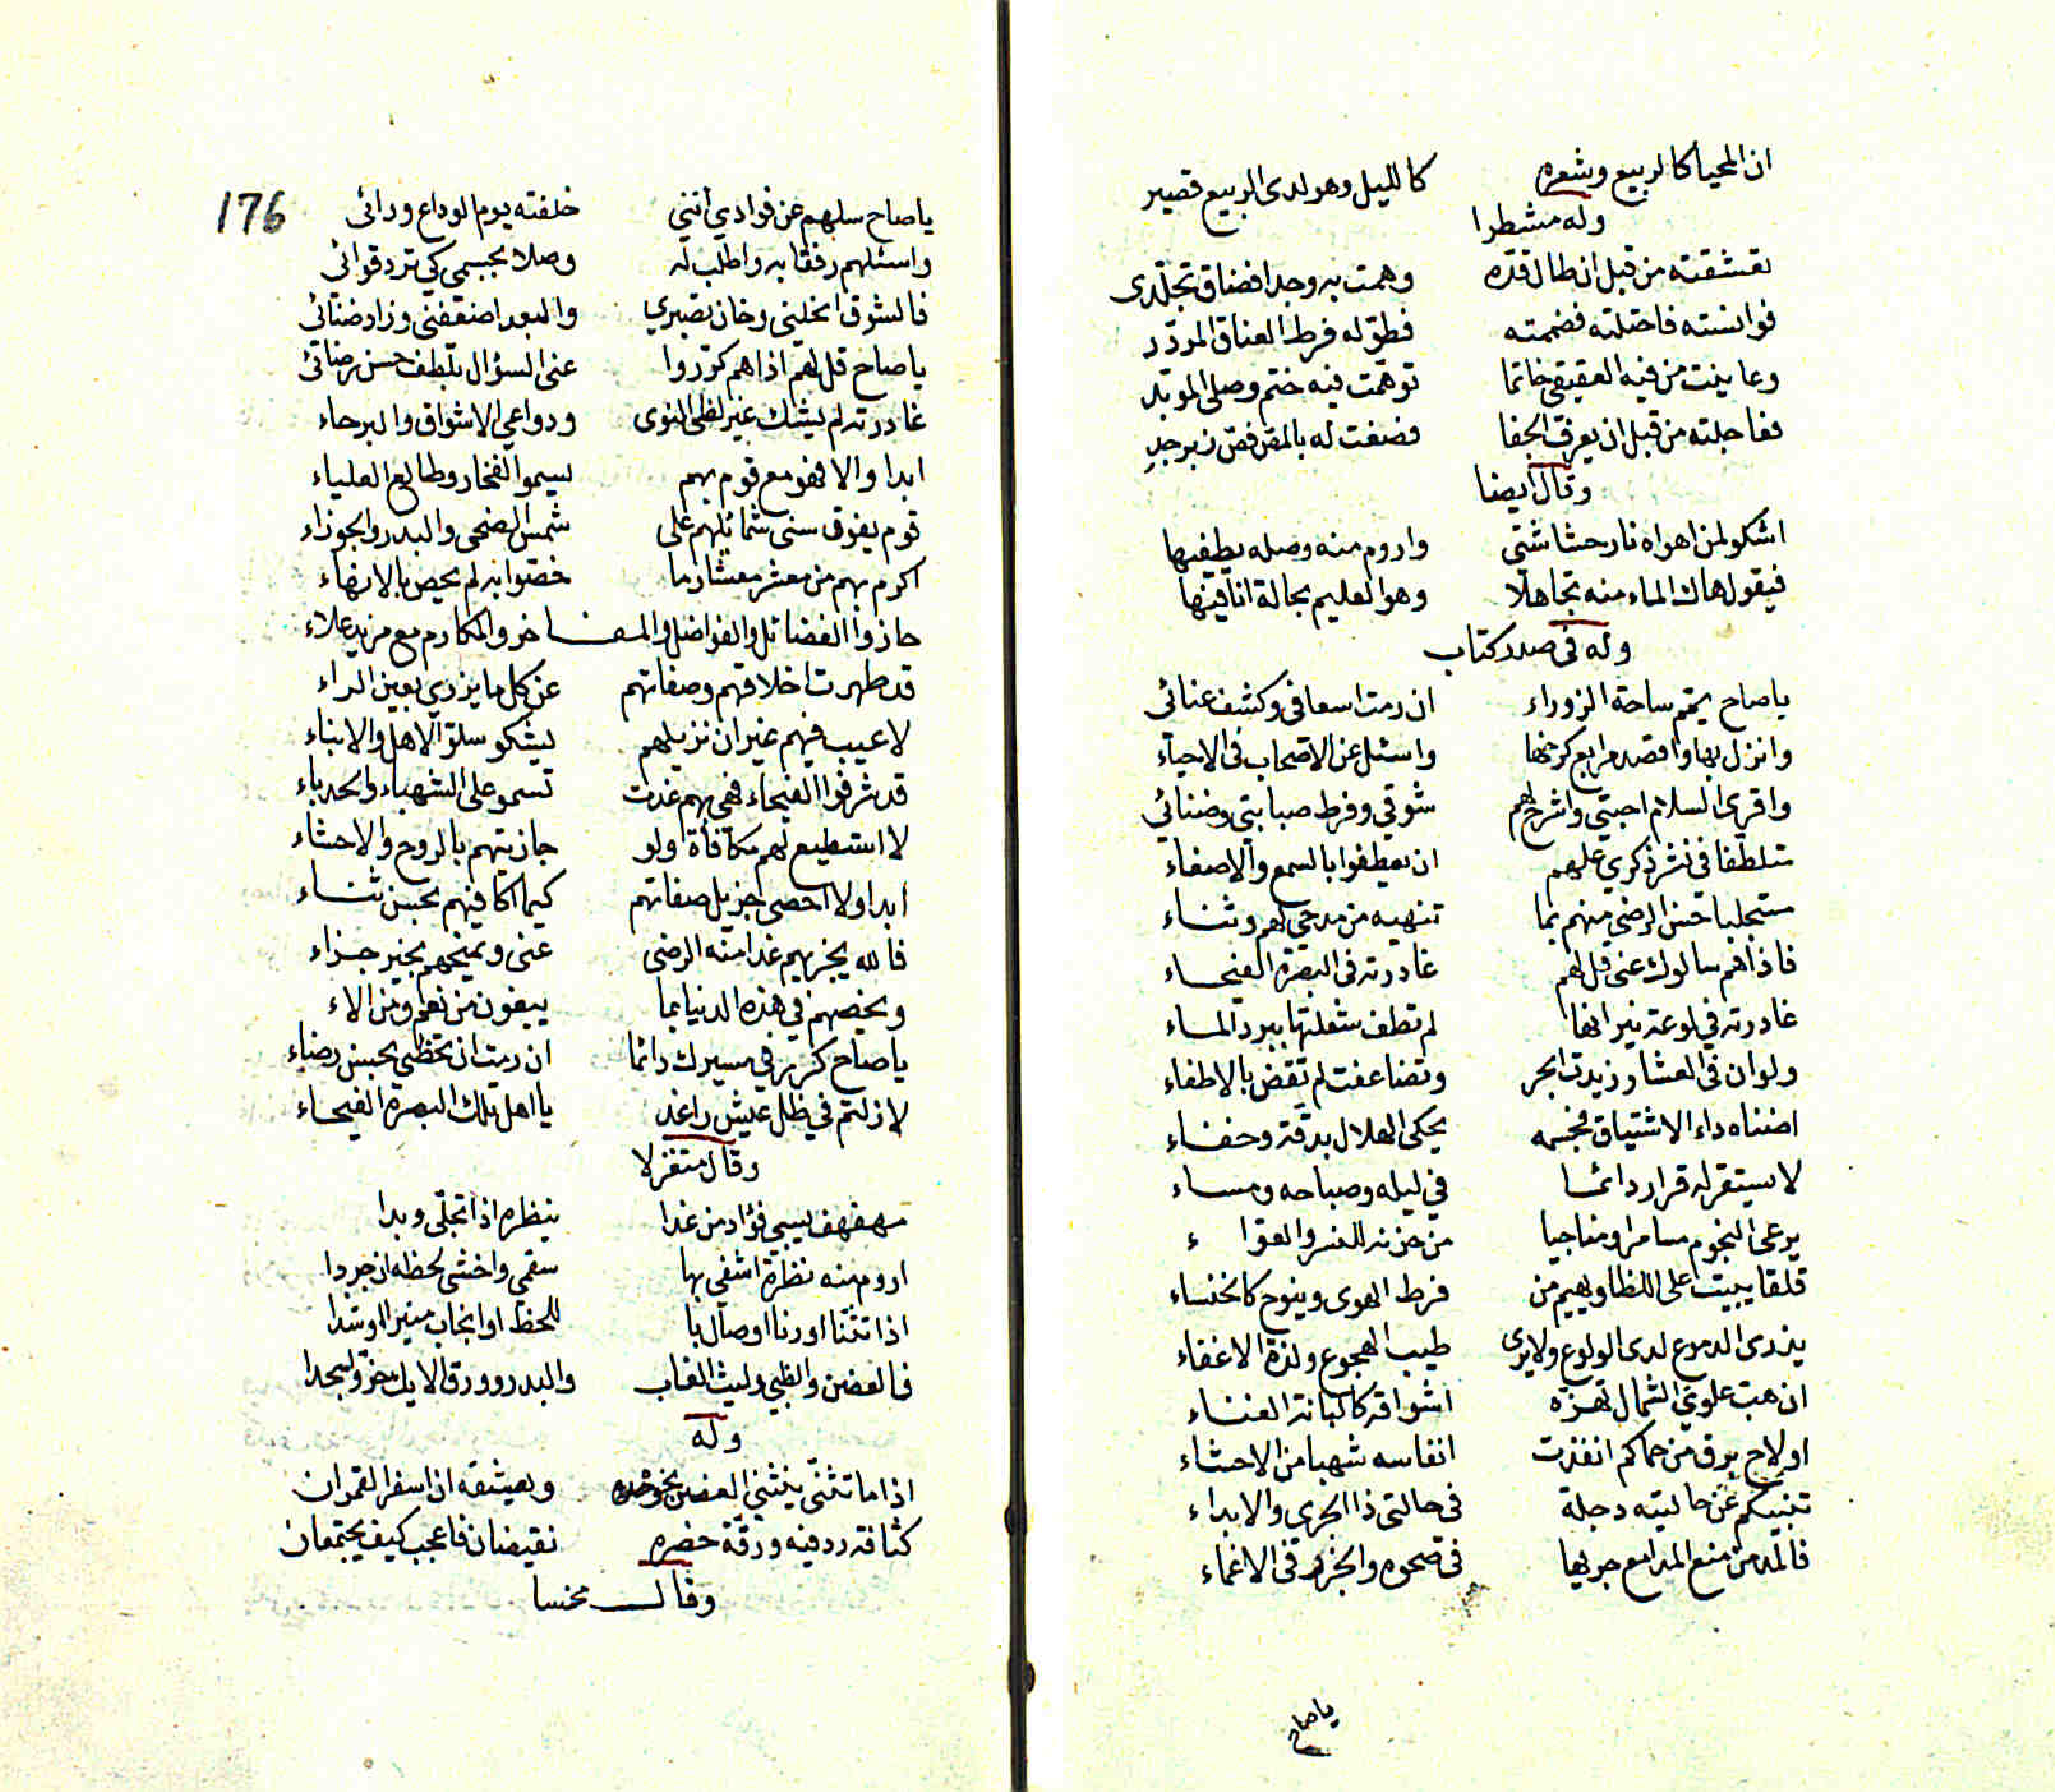 ان المحيا كالربيع وشعره كالليل وهو لدى الربيع قصير
وله مشطرا
تعشقته من قبل ان طال قده وهمت به وجدا فضاق تجلدى
فوانسته فاحتلته فضممته فطوله فرط العناق المردد
وعاينت من فيه العقيقي خاتما توهمت فيه ختم وصلى المؤبد
فعاجلته من قبل ان يعرف الجفا فصغت له بالمض فص زبرجد
وقال ايضا
اشكو لمن اهواه نار حشاشتى واروم منه وصله يطفيها
فيقول هاك الماء منه تجاهلا وهو العليم بحالة انا فيها
وله فى صدر كتاب
يا صاح يمم ساحة الزوراء ان رمت اسعافى وكشف عنائى
وانزل بها واقصد مرابع كرخها واسئل عن الاصحاب فى الاحياء
واقرى السلام احبتي واشرح لهم شوقي وفرط صبابتى وضنائي
متلطفا في نشر ذكري علهم ان يعطفوا بالسمع والاصغاء
مستجلبا حسن الرضى منهم بما تنهيه من مدحى لهم وثناء
فاذا هم سالوك عنى قل لهم غادرته فى البصرة الفيحاء
غادرته في لوعة نيرانها لم تطف شعلتها ببرد الماء
ولو ان فى العشار زيدت ابحر وتضاعفت لم تقض بالاطفاء
اضناه داء الاشتياق فجسمه يحكى الهلال بدقة وخفاء
لا يستقر له قرار دائما في ليله وصباحه ومساء
يرعى النجوم مسامرا ومناجيا من حزنه للنسر والعواء
قلقا يبيت على اللظا ويهيم من فرط الهوى وينوح كالخنساء
يذرى الدموع لدى الولوع ولا يرى طيب الهجوع ولذة الاغفاء
ان هب علوي الشمال تهزه اشواقه كالبانة الغناء
او لاح برق من حماكم انفذت انفاسه شهبا من الاحشاء
تنبيكم عن حاليته دجلة فى حالتى ذا الجرى والابداء
فالمد من منع المدامع جريها فى صحوه والجزر فى الاغماء
يا صاح
176
يا صاح سلهم عن فوادي انني خلفته يوم الوداع ورائى
واسئلهم رفقا به واطلب له وصلا بجسمي كي ترد قوائى
فالشوق انحلنى وخان تصبري والبعد اضعفنى وزاد ضنائى
يا صاح قل لهم اذا هم كرروا عنى السؤال بلطف حسن رضائى
غادرته لم يشك غير لظى النوى ودواعي الاشواق والبرحاء
ابدا والا فهو مع قوم بهم يسموا الفخار وطالع العلياء
قوم يفوق سنى شمائلهم على شمس الضحى والبدر والجوزاء
اكرم بهم من معشر معشار ما خصوا به لم يحص بالانهاء
حازوا الفضائل والفواضل والمفاخر والمكارم مع مزيد علاء
قد طهرت اخلاقهم وصفاتهم عن كل ما يزرى بعين الراء
لا عيب فيهم غير ان نزيلهم يشكو سلو الاهل والابناء
قد شرفوا الفيحاء فهى بهم غدت تسمو على الشهباء والحدباء
لا استطيع لهم مكافأة ولو جازيتهم بالروح والاحشاء
ابدا ولا احصى جزيل صفاتهم كيما اكافيهم بحسن ثناء
فالله يجزيهم غدا منه الرضى عنى ويمنحهم بخير جزاء
ويخصهم في هذه الدنيا بما يبغون من نعم ومن الاء
يا صاح كرر في مسيرك دائما ان رمت ان تحظى بحسن رضاء
لا زلتم في ظل عيش راغد يا اهل تلك البصرة الفيحاء
وقال متغزلا
مهفهف يسبى فؤاد من غدا ينظره اذا تجلى وبدا
اروم منه نظرة اشفي بها سقمي واخشى لحظه ان جردا
اذا تثنا او رنا او صال با للحظ او انجاب منيرا او شدا
فالغصن والظبي وليث الغاب والبدر وورق الايك خر سجدا
وله
اذا ما تثنى ينثني الغصن نحوه ويعشقه ان اسفر القمران
كثافة ردفيه ورقة خصره نقيضان فاعجب كيف يجتمعان
وقال مخمسا